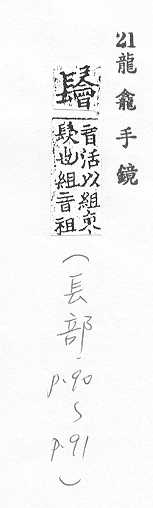 21龍龕手鏡
鬠
音活以組束
髮也組音祖
(長部-p.90~p.91)